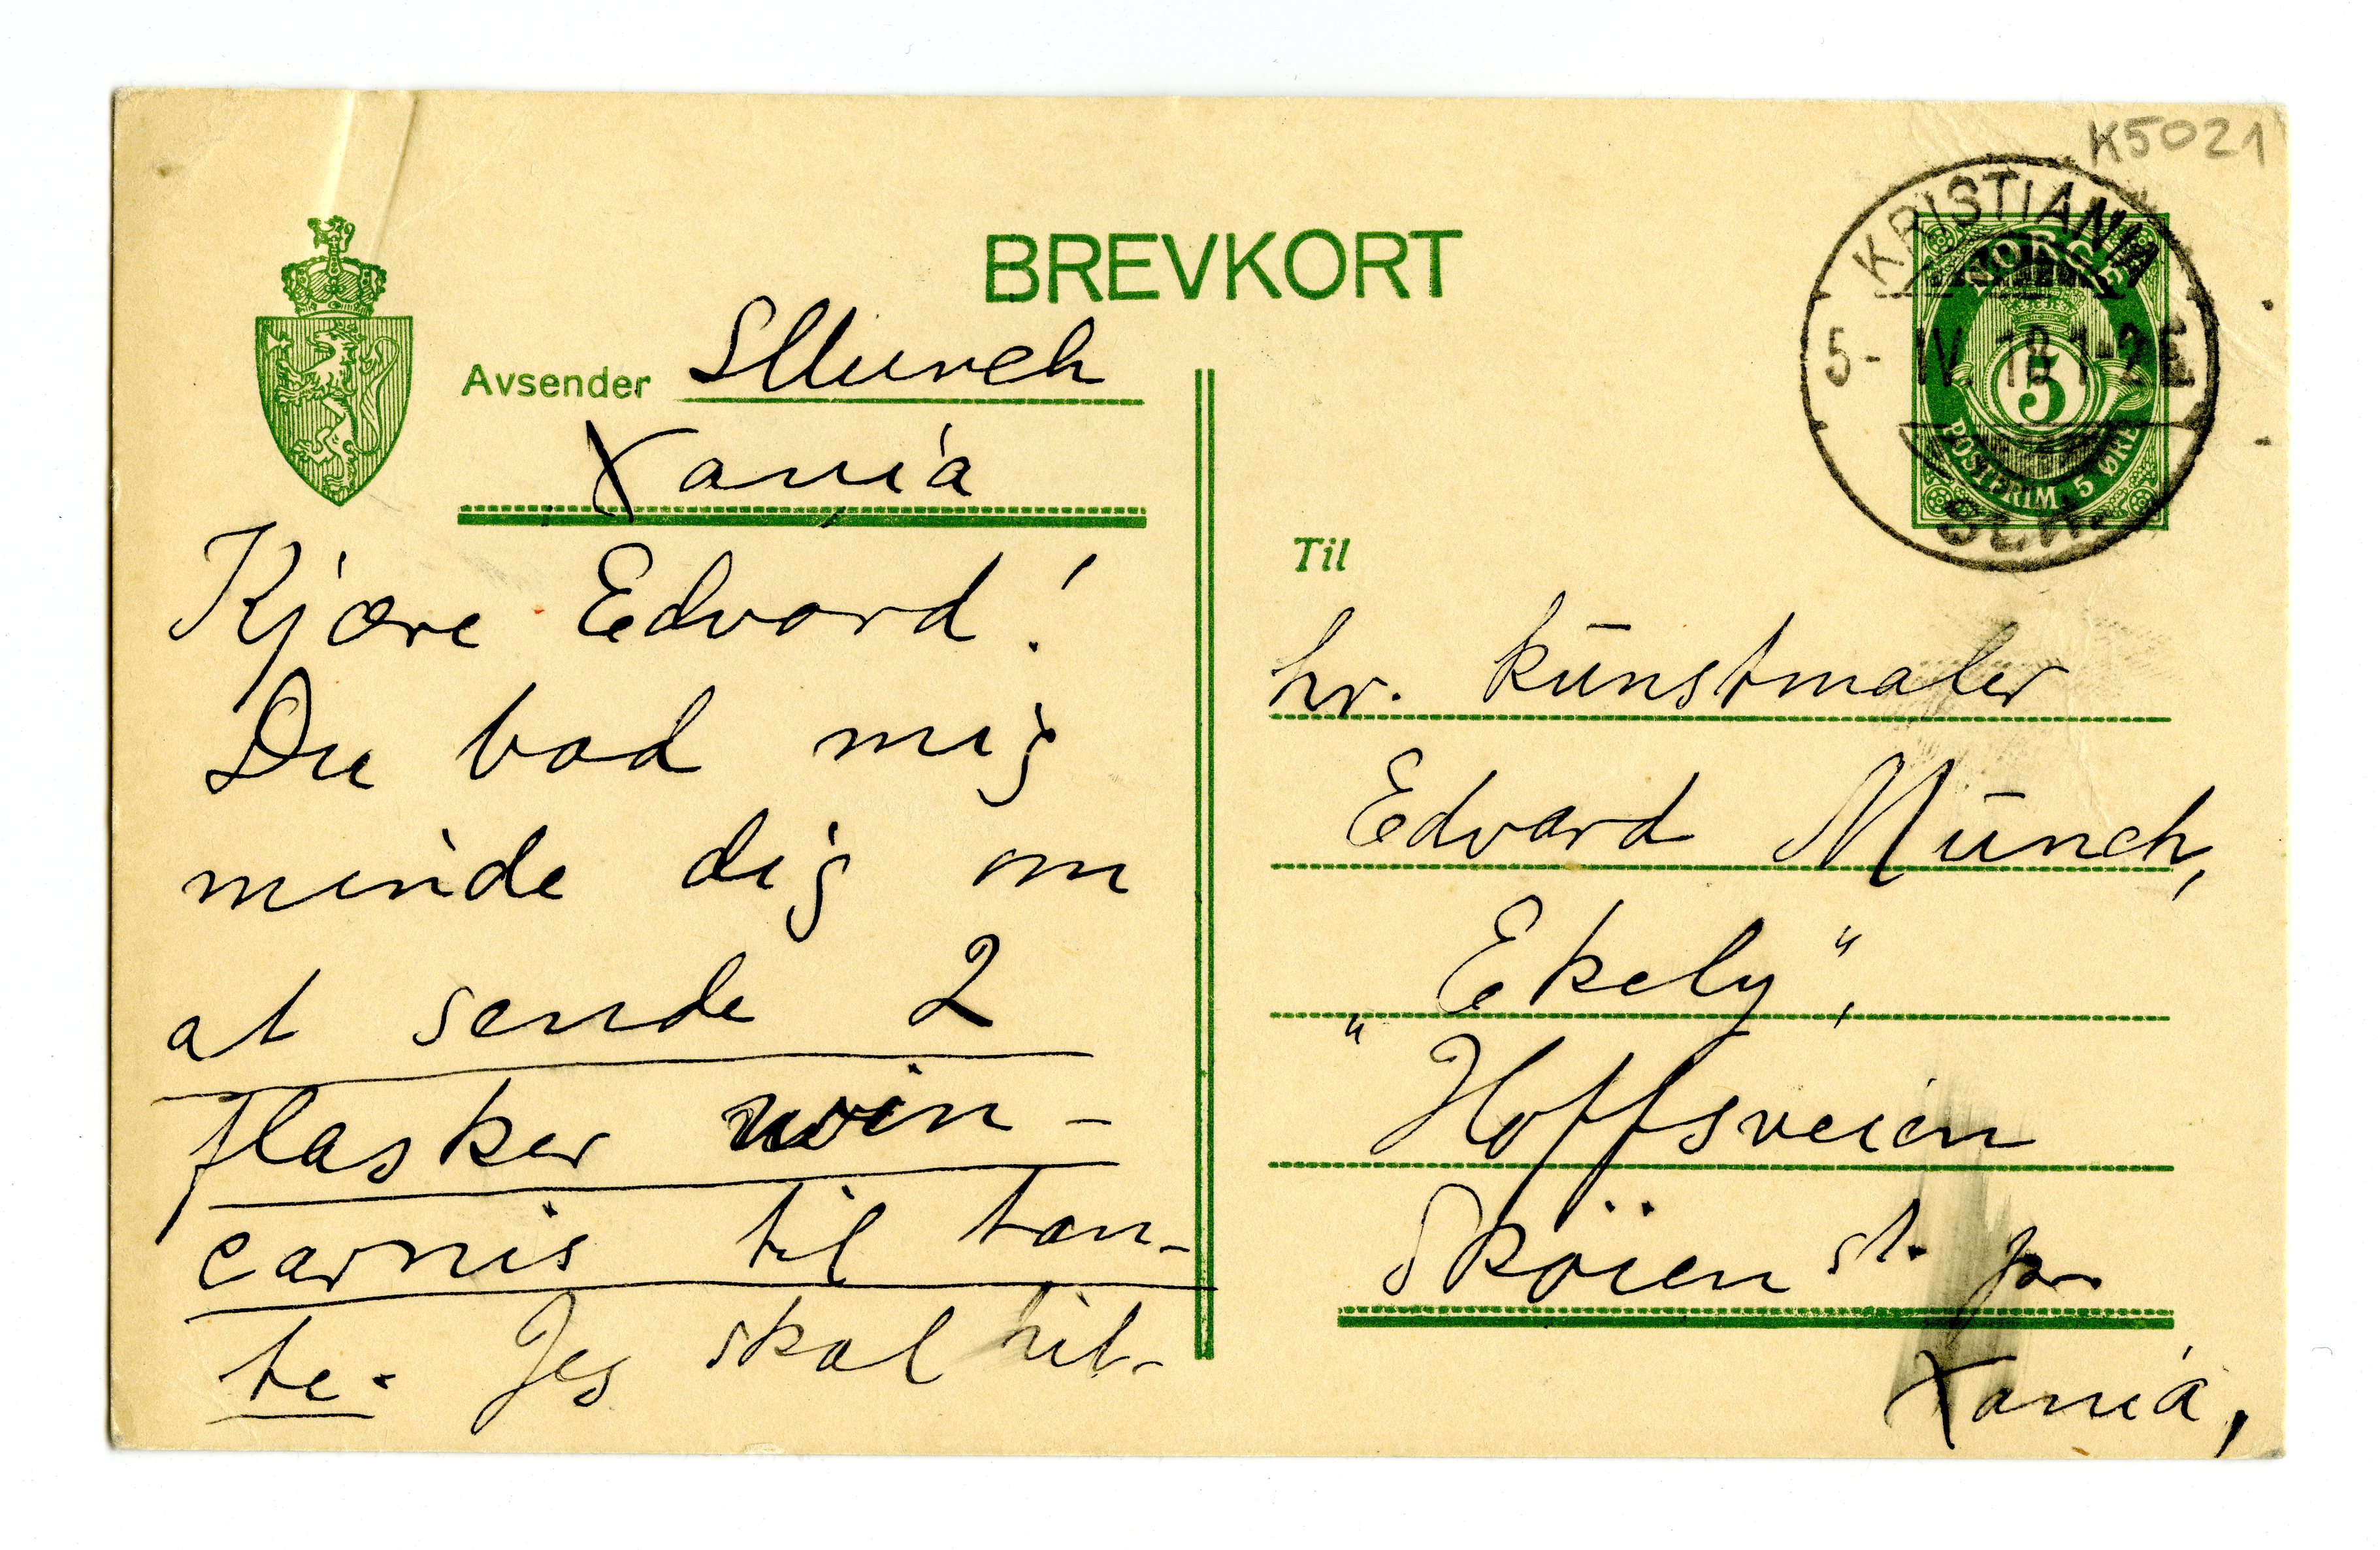 K5021
BREVKORT
KRISTIANIA
5- IV. 18 1-2 E
NORGE
5
POSTFRIM. 5 ØRE
Avsender SMunch
Xania
Kjære Edvard!
Du bad mig
minde dig om
at sende 2
flasker win-
carnis til tan-
te. Jeg skal hil-
Til
hr. kunstmaler
Edvard Munch,
„Ekely“,
Hoffsveien
Sköien st. pr.
Xania,